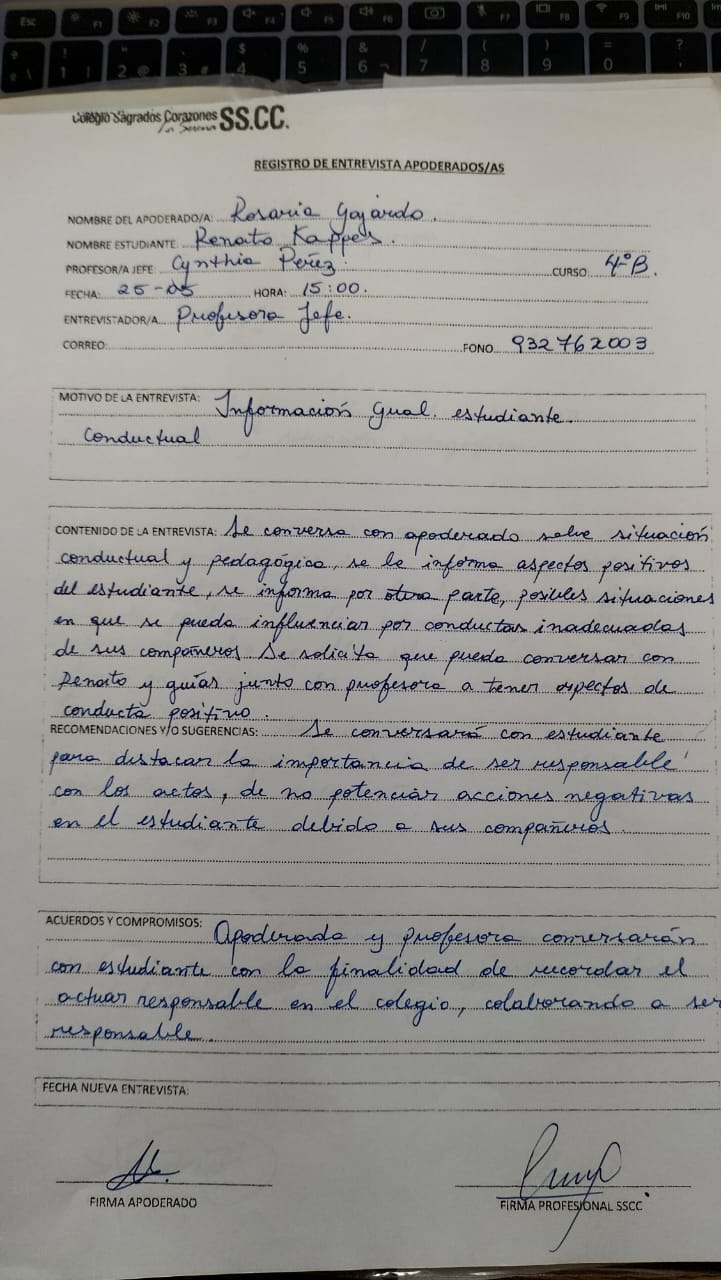 Esc F1 F2 F3 F4 F5 F6 F7 F8 F9 F10
! " $ % & / ( ) = ?
1 2 @ 3 # 4 5 6 ¬ 7 8 9 0 '
Colegio Sagrados Corazones SS.CC.
La Serena
REGISTRO DE ENTREVISTA APODERADOS/AS
NOMBRE DEL APODERADO/A: Rosaria Gajardo.
NOMBRE ESTUDIANTE: Renato Kappes.
PROFESOR/A JEFE: Cynthia Pérez. CURSO: 4°B.
FECHA: 25-05 HORA: 15:00.
ENTREVISTADOR/A: Profesora Jefe.
CORREO: FONO 932762003
MOTIVO DE LA ENTREVISTA: Información Gual. estudiante.
Conductual
CONTENIDO DE LA ENTREVISTA: Se conversa con apoderado sobre situación
conductual y pedagógica, se le informa aspectos positivos
del estudiante, se informa por otra parte, posibles situaciones
en que se pueda influenciar por conductas inadecuadas
de sus compañeros. Se solicita que pueda conversar con
Renato y guías junto con profesora a tener aspectos de
conducta positivo.
RECOMENDACIONES Y/O SUGERENCIAS: Se conversará con estudiante
para distacar la importancia de ser responsable
con los actos, de no potenciar acciones negativas
en el estudiante debido a sus compañeros.
ACUERDOS Y COMPROMISOS: Apoderada y profesora conversarán
con estudiante con la finalidad de recordar el
actuar responsable en el colegio, colaborando a ser
responsable.
FECHA NUEVA ENTREVISTA:
FIRMA APODERADO FIRMA PROFESIONAL SSCC